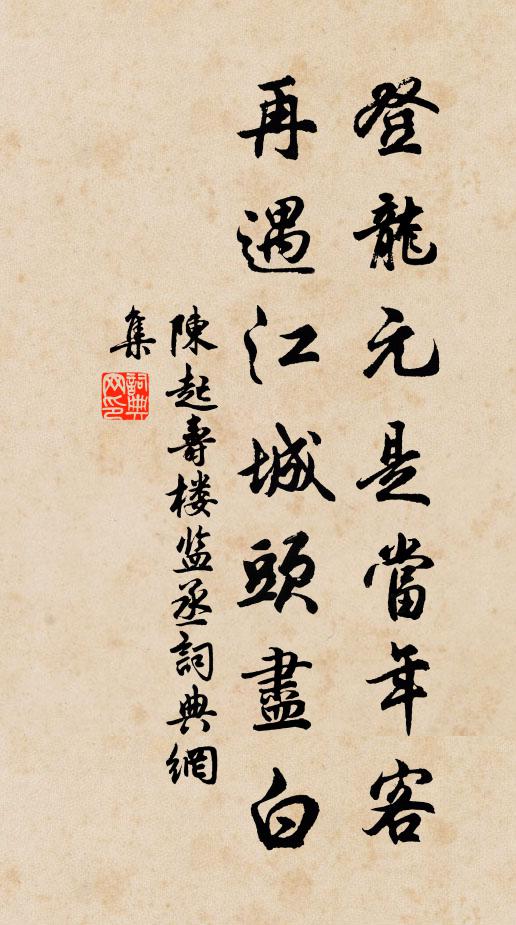 登龍元是當年客
再遇江城頭盡白
陳起壽楼监丞詞典網
集
詞典
网印